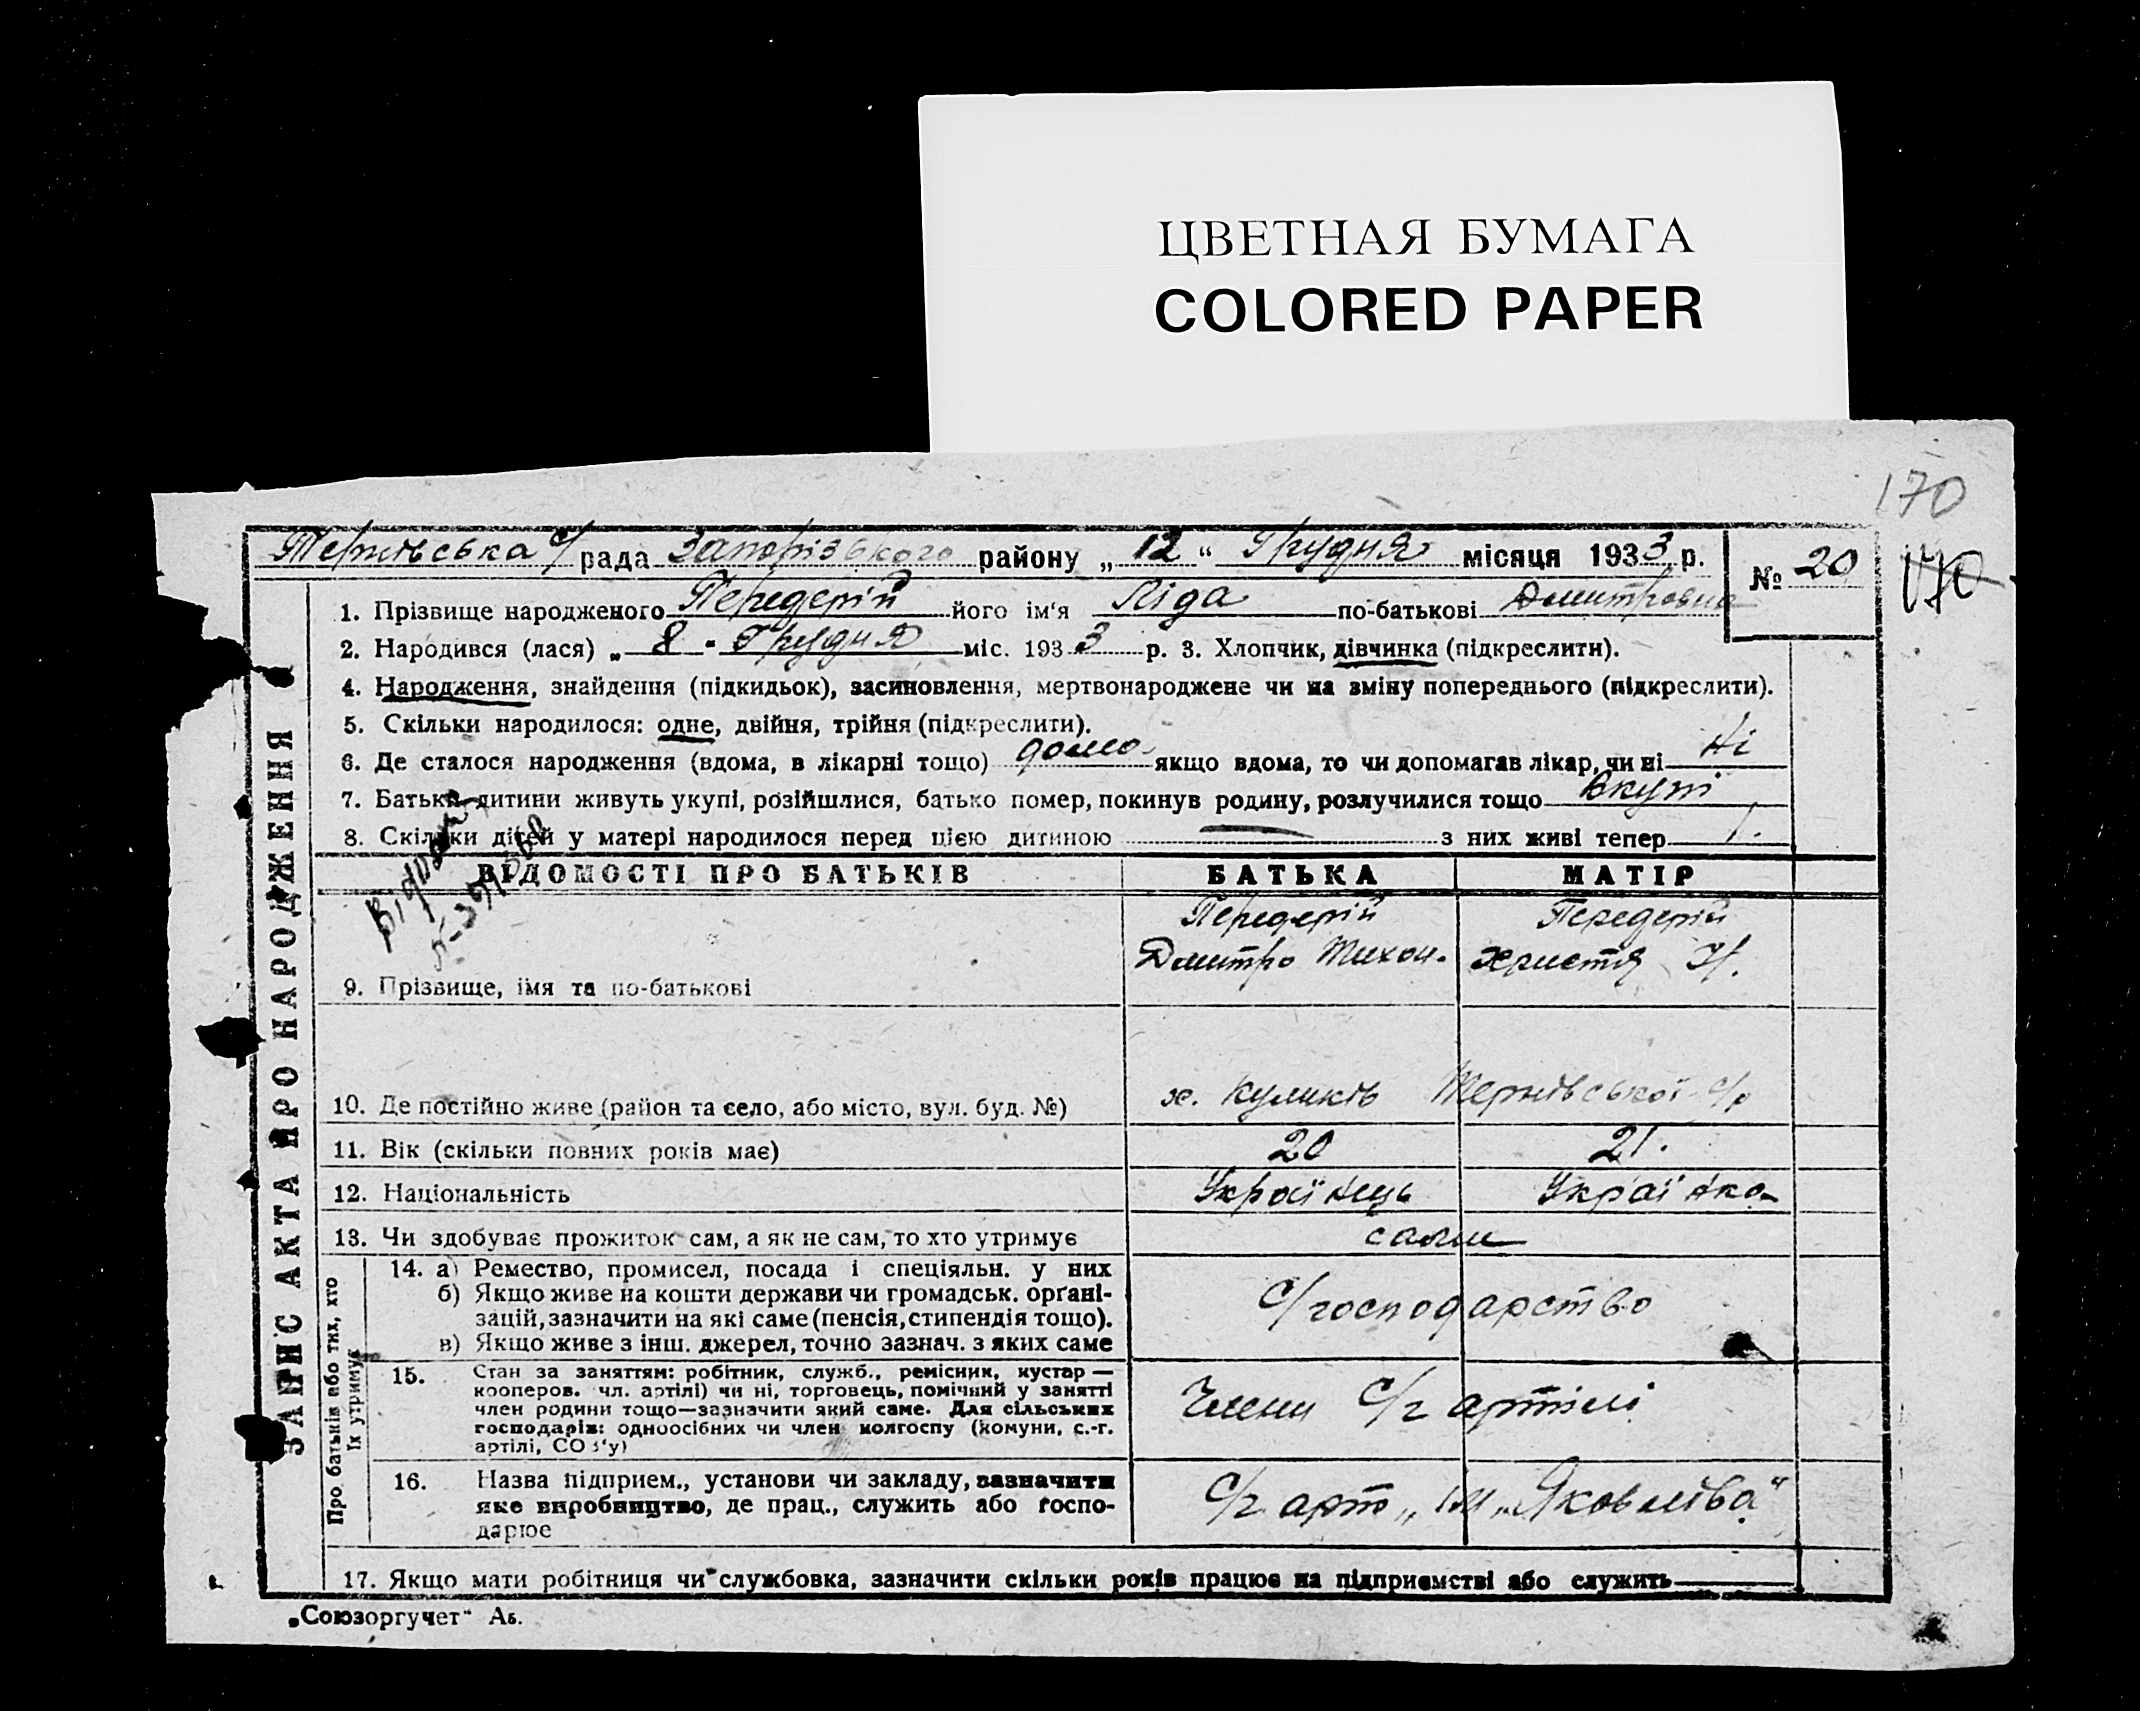 ЦВЕТНАЯ БУМАГА
COLORED PAPER
170
Тернівська с/рада Запорізького району „12“ Грудня місяця 1933 р.
№ 20
170
1. Прізвище народженого Передерій його ім'я Ліда по-батькові Дмитровна
2. Народився (лася) „ 8 " Грудня міс. 1933 р. 3. Хлопчик, дівчинка (підкреслити).
4. Народження, знайдення (підкидьок), засиновлення, мертвонароджене чи на зміну попереднього (підкреслити).
5. Скільки народилося: одне, двійня, трійня (підкреслити).
6. Де сталося народження (вдома, в лікарні тощо) дома якщо вдома, то чи допомагав лікар, чи ні Ні
7. Батьки дитини живуть укупі, розійшлися, батько помер, покинув родину, розлучилися тощо вкупі
8. Скільки дітей у матері народилося перед цією дитиною — з них живі тепер 1.
ВІДОМОСТІ ПРО БАТЬКІВ БАТЬКА МАТІР
Передерій Передерій
Дмитро Тихон. Христя
9. Прізвище, імя та по-батькові
10. Де постійно живе (район та село, або місто, вул. буд. №) х. Куликів Тернівської с/р
11. Вік (скільки повних років має) 20 21.
12. Національність Українець Українка
13. Чи здобуває прожиток сам, а як не сам, то хто утримує сами
14. а) Ремество, промисел, посада і спеціяльн. у них
б) Якщо живе на кошти держави чи громадськ. орґані-
зацій, зазначити на які саме (пенсія, стипендія тощо).
в) Якщо живе з інш. джерел, точно зазнач. з яких саме
С/господарство
15. Стан за заняттям: робітник, служб., ремісник, кустар —
кооперов. чл. артілі) чи ні, торговець, помічний у занятті
член родини тощо—зазначити який саме. Для сільських
господарів: одноосібних чи член колгоспу (комуни, с.-г.
артілі, СОЗ'у)
Члени С/г артілі
16. Назва підприєм., установи чи закладу, зазначити
яке виробництво, де прац., служить або госпо-
дарює
С/г арт „ім „Яковліва“
17. Якщо мати робітниця чи службовка, зазначити скільки років працює на підприємстві або служить —
„Союзоргучет“ Аб.
ЗАПИС АКТА ПРО НАРОДЖЕННЯ
Про батьків або тих, хто
їх утримує